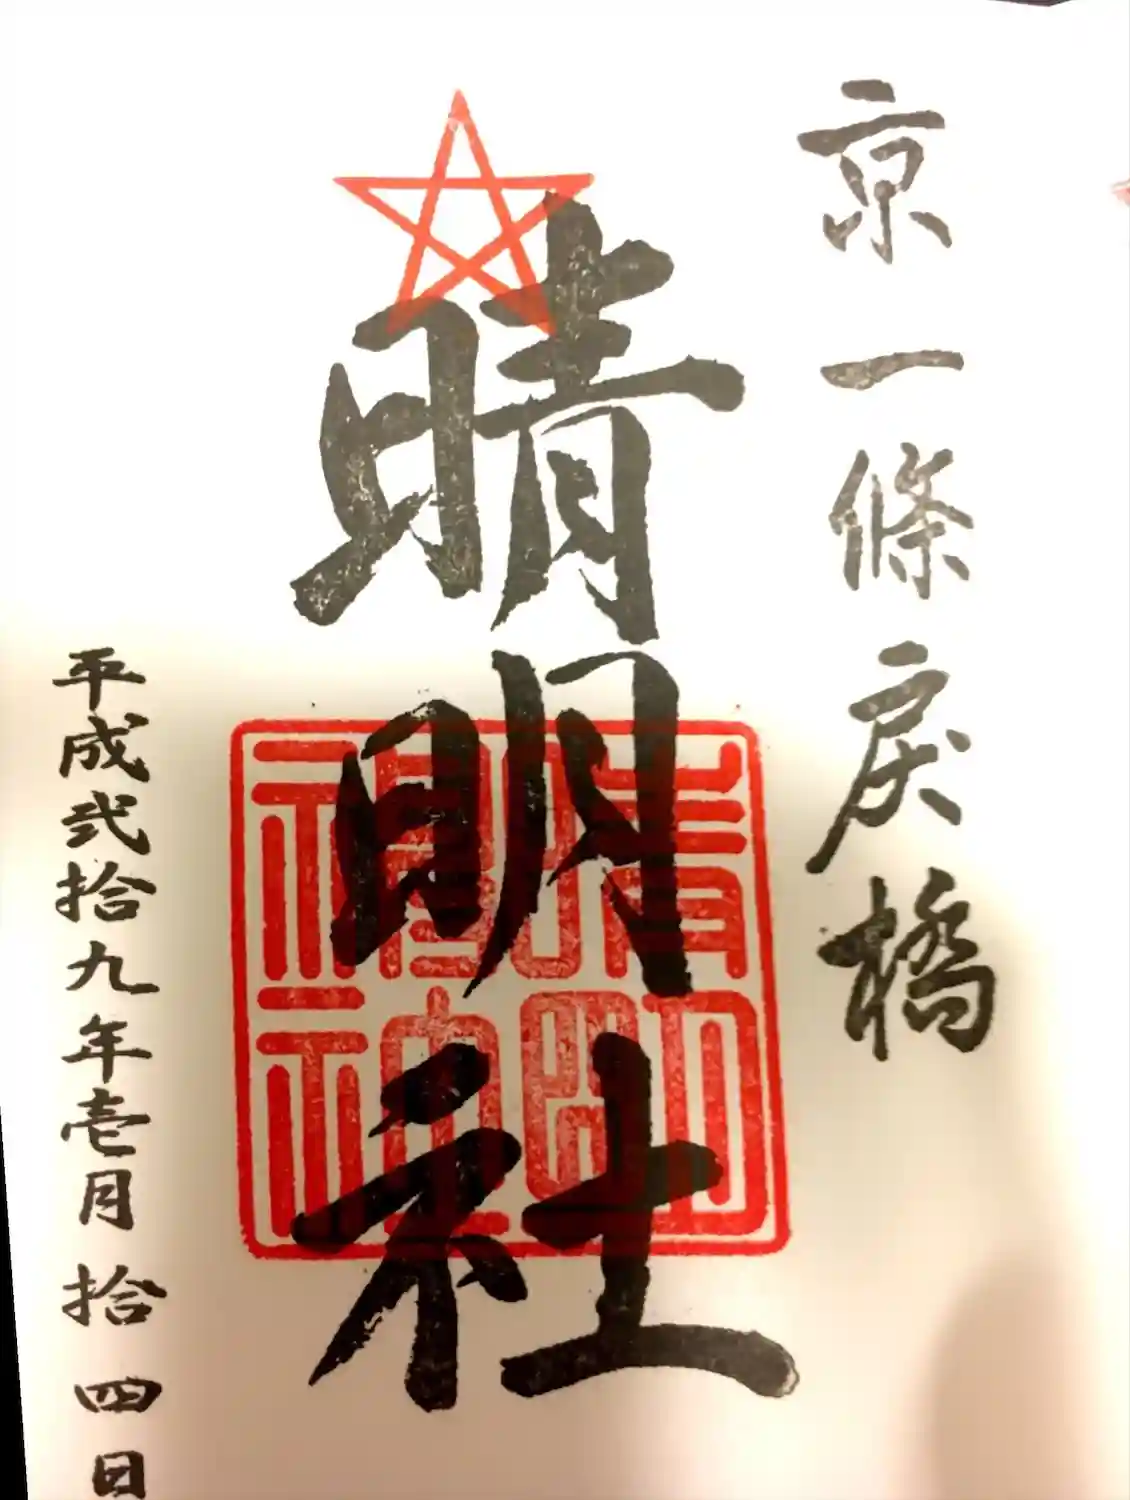 京一條戻橋
晴明社
晴明神社
平成弐拾九年壱月拾四日